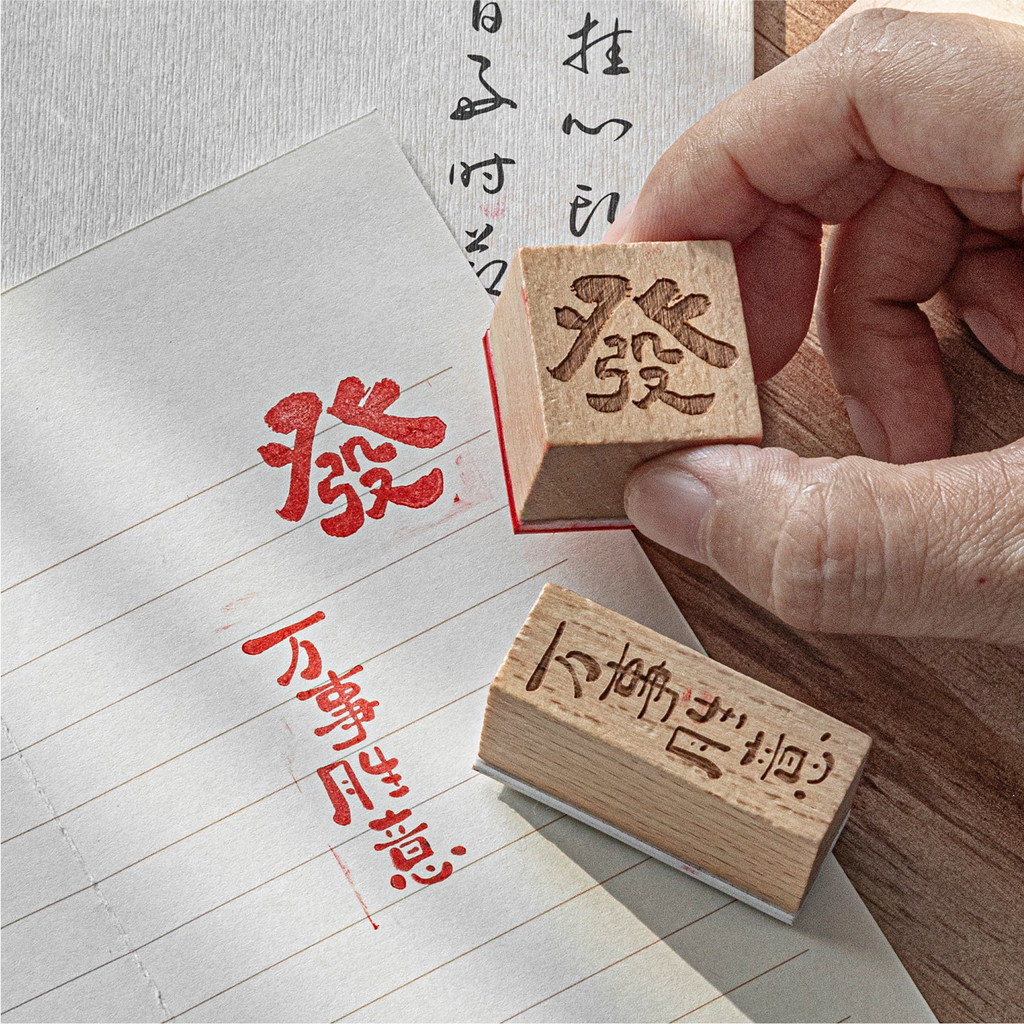 挂心印
日子时
發
万事胜意
發
万事胜意